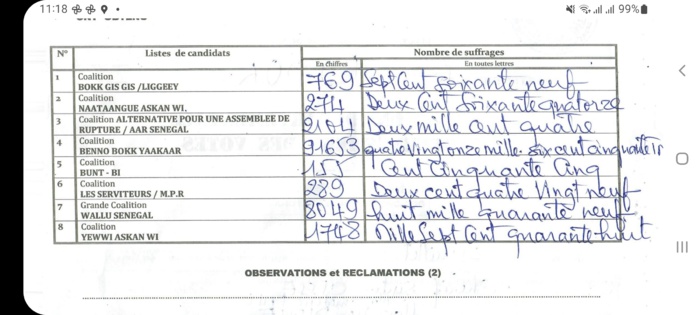 11:18
99%
N° Listes de candidats Nombre de suffrages
En chiffres En toutes lettres
1 Coalition BOKK GIS GIS /LIGGEEY 769 Sept Cent soixante neuf
2 Coalition NAATAANGUE ASKAN WI. 274 Deux Cent Soixante quatorze
3 Coalition ALTERNATIVE POUR UNE ASSEMBLEE DE RUPTURE / AAR SENEGAL 2104 Deux mille cent quatre
4 Coalition BENNO BOKK YAAKAAR 91653 quatre vingt onze mille six cent cinquante
5 Coalition BUNT - BI 155 Cent Cinquante Cinq
6 Coalition LES SERVITEURS / M.P.R 289 Deux cent quatre Vingt neuf
7 Grande Coalition WALLU SENEGAL 8049 huit mille quarante neuf
8 Coalition YEWWI ASKAN WI 1748 Mille Sept Cent quarante huit
OBSERVATIONS et RECLAMATIONS (2)